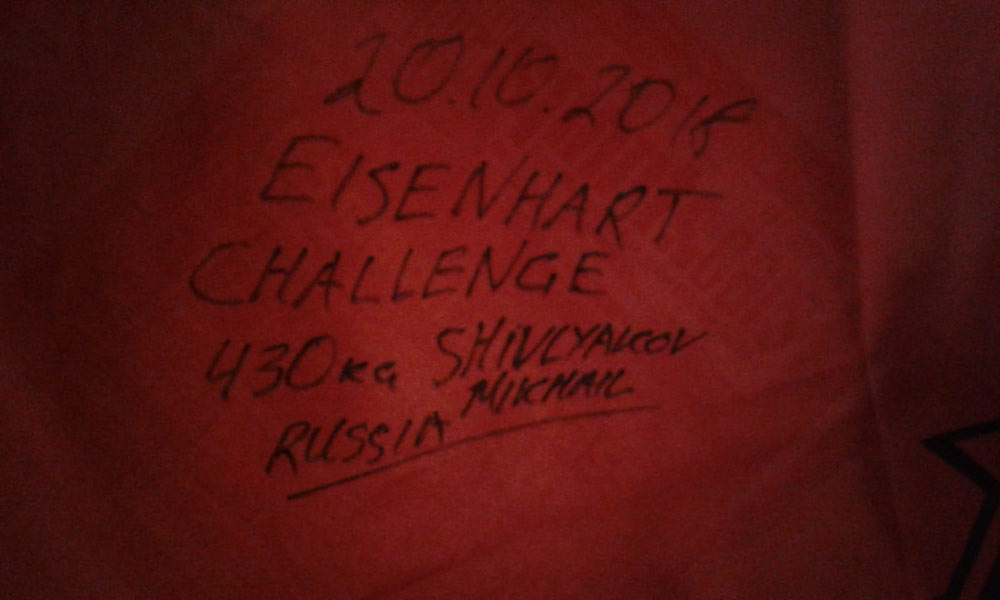 20.10.2018
EISENHART
CHALLENGE
430KG SHIVLYAKOV
MIKHAIL
RUSSIA